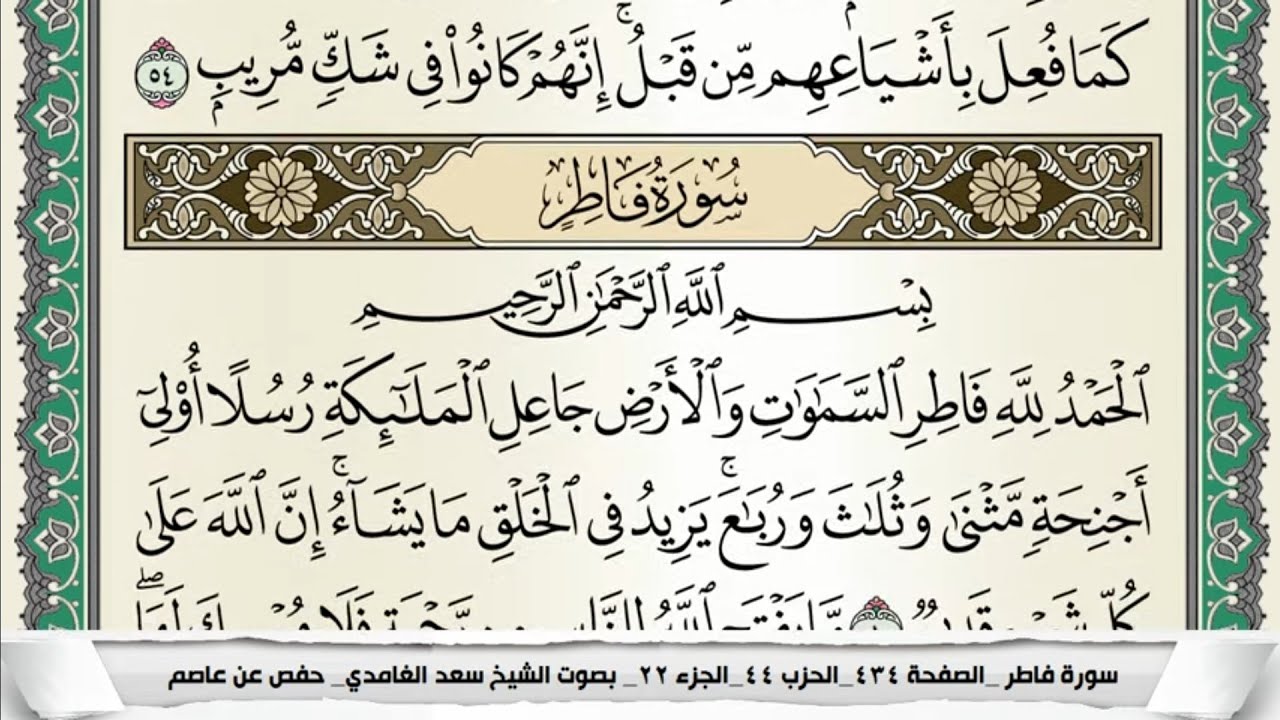 كَمَا فُعِلَ بِأَشْيَاعِهِم مِّن قَبْلُ ۚ إِنَّهُمْ كَانُوا۟ فِى شَكٍّ مُّرِيبٍۭ ٥٤
سُورَةُ فَاطِرٍ
بِسْمِ ٱللَّهِ ٱلرَّحْمَٰنِ ٱلرَّحِيمِ
ٱلْحَمْدُ لِلَّهِ فَاطِرِ ٱلسَّمَٰوَٰتِ وَٱلْأَرْضِ جَاعِلِ ٱلْمَلَٰٓئِكَةِ رُسُلًا أُو۟لِىٓ
أَجْنِحَةٍ مَّثْنَىٰ وَثُلَٰثَ وَرُبَٰعَ ۚ يَزِيدُ فِى ٱلْخَلْقِ مَا يَشَآءُ ۚ إِنَّ ٱللَّهَ عَلَىٰ
سورة فاطر _الصفحة ٤٣٤_الحزب ٤٤_الجزء ٢٢_ بصوت الشيخ سعد الغامدي_ حفص عن عاصم